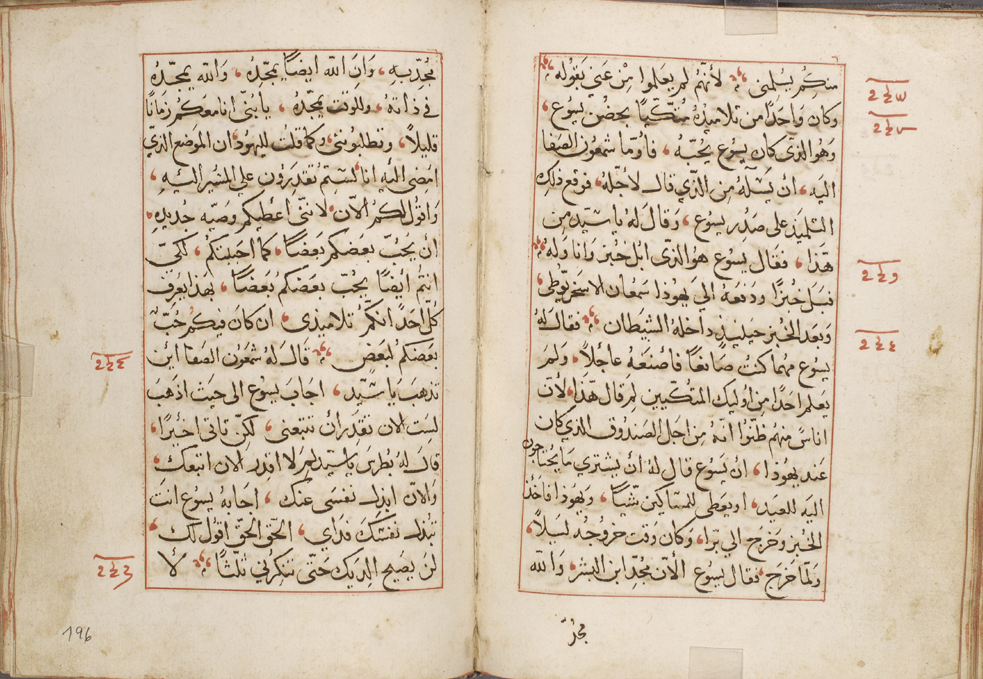 منكم يسلمني لأنهم لم يعلموا مِنْ عَني بقوله
وكان وَاحدًا من تلاميذهُ متكيًا بحضن يسوع ،
وهو الذي كان يسوع يحبّه ، فاومَا شمعون الصفا
اليه ، ان يسَلهُ مِن الذّي قال لاجله ، فوقع ذلك
التلميذ على صدر يسوع ، وقال لهُ يا سيّد من
هَذا ، فقال يسوع هو الذّى ابل خبز وَاناوله
فبل خبزًا ودفعهُ الي يهوذا سمعان الاسخريوطي ،
وبعد الخبز حينيذٍ داخلهُ الشيطان فقال لهُ
يسوع مهما كنت صَانعًا فاصنعهُ عاجلًا ، ولم
يعلم احدًا من اوليك المتكيين لمِ قال هَذا ، لأن
اناسٌ منهم ظنّوا انهُ من اجل الصندوق الذي كان
عند يهوذا ، انّ يسوع قال لهُ أن يشتري ما يحتاجون
اليه للعيد ، او يعطى للمسَاكين شيًا ، ويهوذا فاخذ
الخبز وَخرَج الي برّا ، وكان وقت خروجه ليلًا ،
ولمّا خرَج ، فقال يسوع الأن مجّد ابن البشر ، وَالله
مجّد
مجّد به ، وَانّ الله ايضًا يمجّدهُ ، وَالله يمجّدهُ
في ذاته ، وللوقت يمجّدهُ ، يا بنىّ انا معكم زمانًا
قليلًا ، وتطلبوننى ، وكما قلت لليهود ، ان الموضع الذّي
امضى اليه انا لستم تقدرون على المسير اليه ،
وَاقول لكم الآن ، لانّى أعطيكم وصيه جديده ،
ان يحبّ بعضكم بعضًا ، كما احببتكم ، لكىّ
انتم أيضًا يحبّ بعضكم بعضًا ، بهذا يعرف
كلّ احدًا انكّم تلاميذى ، ان كان فيكم حبّ
بعضكم لبعض قال لهُ شمعون الصفا اين
تذهب يا سيّد ، اجاب يسوع الى حيث اذهب
لست الان تقدر أن تتبعنى ، لكن تاتى اخيرًا ،
قال لهُ بطرس يا سيد لم لا اقدر الان اتبعك ،
وَالآن ابدل نفسى عنك ، اجابهُ يسوع انت
تبدل نفسَك فداي ، الحقّ الحقّ اقول لك ،
لن يصيح الديك حَتّى تنكرنى ثلثًا لا
196